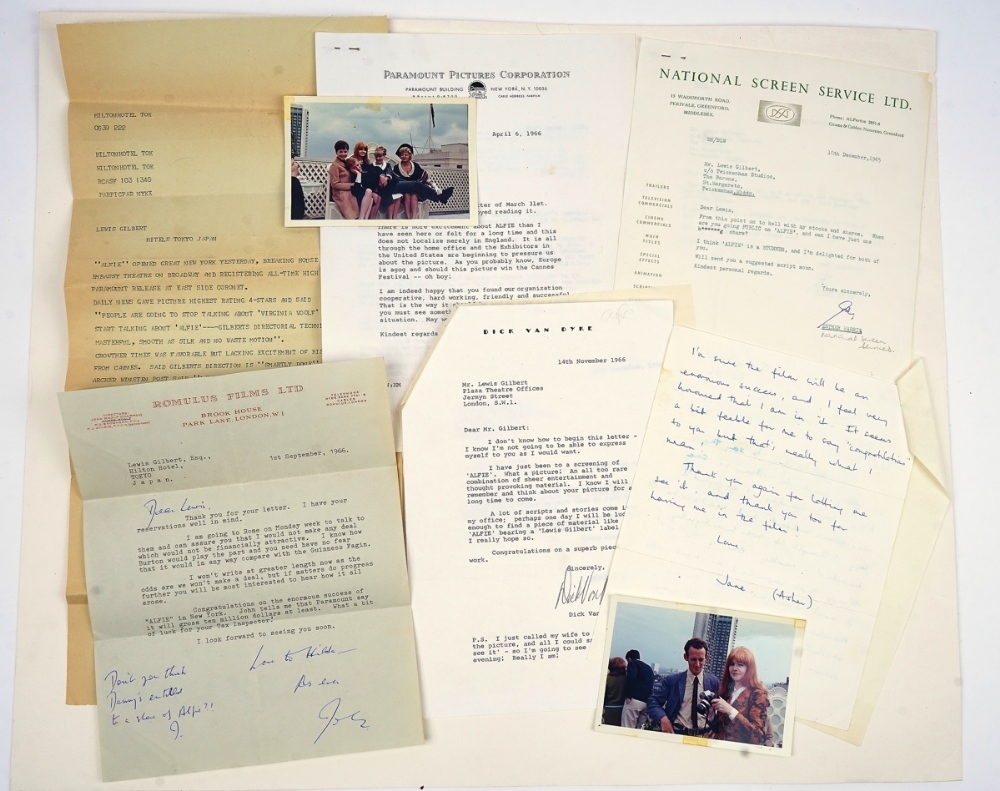 HILTONHOTEL TOK
0539 222
HILTONHOTEL TOK
HILTONHOTEL TOK
RCASF 103 1340
PARPICPAR NYKX
LEWIS GILBERT
HOTELS TOKYO JAPAN
"ALFIE" OPENED GREAT NEW YORK YESTERDAY, BREAKING HOUSE
EMBASSY THEATRE ON BROADWAY AND REGISTERING ALL-TIME HIGH
PARAMOUNT RELEASE AT EAST SIDE CORONET.
DAILY NEWS GAVE PICTURE HIGHEST RATING 4-STARS AND SAID
"PEOPLE ARE GOING TO STOP TALKING ABOUT 'VIRGINIA WOOLF'
START TALKING ABOUT 'ALFIE'---GILBERTS DIRECTORIAL TECHNI
MASTERFUL, SMOOTH AS SILK AND NO WASTE MOTION".
CROWTHER TIMES WAS FAVORABLE BUT LACKING EXCITEMENT OF HIS
FROM CANNES. SAID GILBERTS DIRECTION IS
ARCHER WINSTEN POST SAID
PARAMOUNT PICTURES CORPORATION
PARAMOUNT BUILDING NEW YORK, N.Y. 10036
April 6, 1966
tter of March 31st.
oyed reading it.
There is more excitement about ALFIE than I
have seen here or felt for a long time and this
does not localize merely in England. It is all
through the home office and the Exhibitors in
the United States are beginning to pressure us
about the picture. As you know, Europe
is agog and should this picture win the Cannes
Festival -- oh boy!
I am indeed happy that you found our organization
cooperative, hard working, friendly and successful
That is the way it should
you must see someth
situation. May w
Kindest regards
NATIONAL SCREEN SERVICE LTD.
15 WADSWORTH ROAD,
PERIVALE, GREENFORD,
MIDDLESEX.
10th December, 1965
Mr. Lewis Gilbert,
c/o Twickenham Studios,
The Barons,
St. Margarets,
Twickenham, Middx.
TRAILERS
TELEVISION
COMMERCIALS
CINEMA
COMMERCIALS
MAIN
TITLES
SPECIAL
EFFECTS
ANIMATION
Dear Lewis,
From this point on to hell with my stocks and shares. When
are you going PUBLIC on 'ALFIE', and can I have just one
b******g share?
I think 'ALFIE' is a STUNNER, and I'm delighted for both of
you.
Will send you a suggested script soon.
Kindest personal regards.
Yours sincerely,
National Screen
Services.
ROMULUS FILMS LTD
BROOK HOUSE
PARK LANE, LONDON, W.1
Lewis Gilbert, Esq.,
Hilton Hotel,
TOKYO
Japan.
1st September, 1966.
Dear Lewis,
Thank you for your letter. I have your
reservations well in mind.
I am going to Rome on Monday week to talk to
them and can assure you that I would not make any deal
which would not be financially attractive. I know how
Burton would play the part and you need have no fear
that it would in any way compare with the Guinness Fagin.
I won't write at greater length now as the
odds are we won't make a deal, but if matters do progress
further you will be most interested to hear how it all
arose.
Congratulations on the enormous success of
"ALFIE" in New York. John tells me that Paramount say
it will gross ten million dollars at least. What a bit
of luck for your Tax Inspector!
I look forward to seeing you soon.
Love to Hilda
As ever
Don't you think
Danny's entitled
to a share of Alfie?!
J.
DICK VAN DYKE
14th November 1966
Mr. Lewis Gilbert
Plaza Theatre Offices
Jermyn Street
London, S.W.1.
Dear Mr. Gilbert:
I don't know how to begin this letter -
I know I'm not going to be able to express
myself to you as I would want.
I have just been to a screening of
'ALFIE'. What a picture! An all too rare
combination of sheer entertainment and
thought provoking material. I know I will
remember and think about your picture for a
long time to come.
A lot of scripts and stories come i
my office; perhaps one day I will be luc
enough to find a piece of material like
'ALFIE' bearing a 'Lewis Gilbert' label
I really hope so.
Congratulations on a superb piec
work.
Sincerely,
Dick Van
P.S. I just called my wife to
the picture, and all I could sa
see it' - so I'm going to see
evening! Really I am!
I'm sure the film will be an
enormous success, and I feel very
honoured that I am in it. It seems
a bit feeble for me to say "congratulations"
to you but that's really what I
mean!
Thank you again for letting me
see it, and thank you too for
having me in the film!
Love,
Jane (Asher)